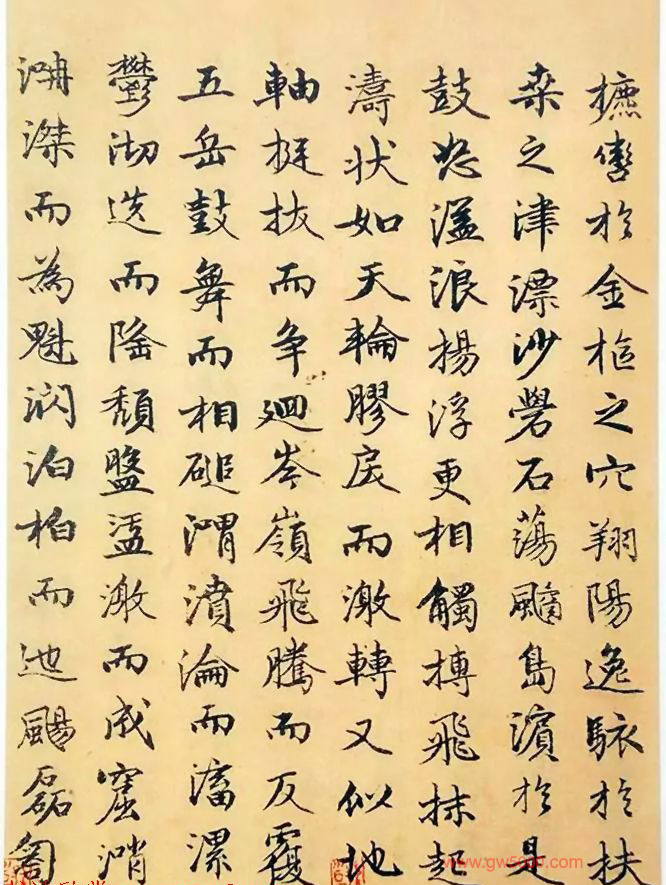 攄轡扵金樞之穴翔陽逸駭扵扶
桒之津漂沙礐石蕩䬍島濱扵是
鼓怒溢浪揚浮更相觸搏飛沫起
濤狀如天輪膠戾而激轉又似地
軸挺拔而争迴岑嶺飛騰而反覆
五岳鼓舞而相磓渭濆淪而滀漯
鬱沏迭而隆頹盤盓激而成窟消
淜滐而為魁㴸泊柏而迆颺磊匒